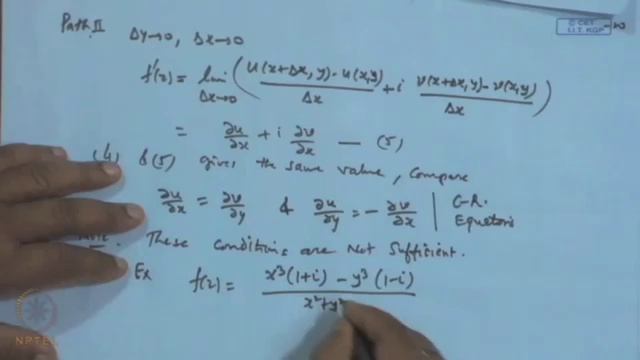 Path II Δy→0, Δx→0
f'(z) = lim Δx→0 ( u(x+Δx, y) - u(x,y) / Δx + i v(x+Δx, y) - v(x,y) / Δx )
= ∂u/∂x + i ∂v/∂x — (5)
(4) & (5) gives the same value, Compare
∂u/∂x = ∂v/∂y & ∂u/∂y = - ∂v/∂x | C-R. Equations
Note. These conditions are Not Sufficient.
Ex f(z) = x³(1+i) - y³(1-i) / x²+y²
© CET
I.I.T. KGP
NPTEL